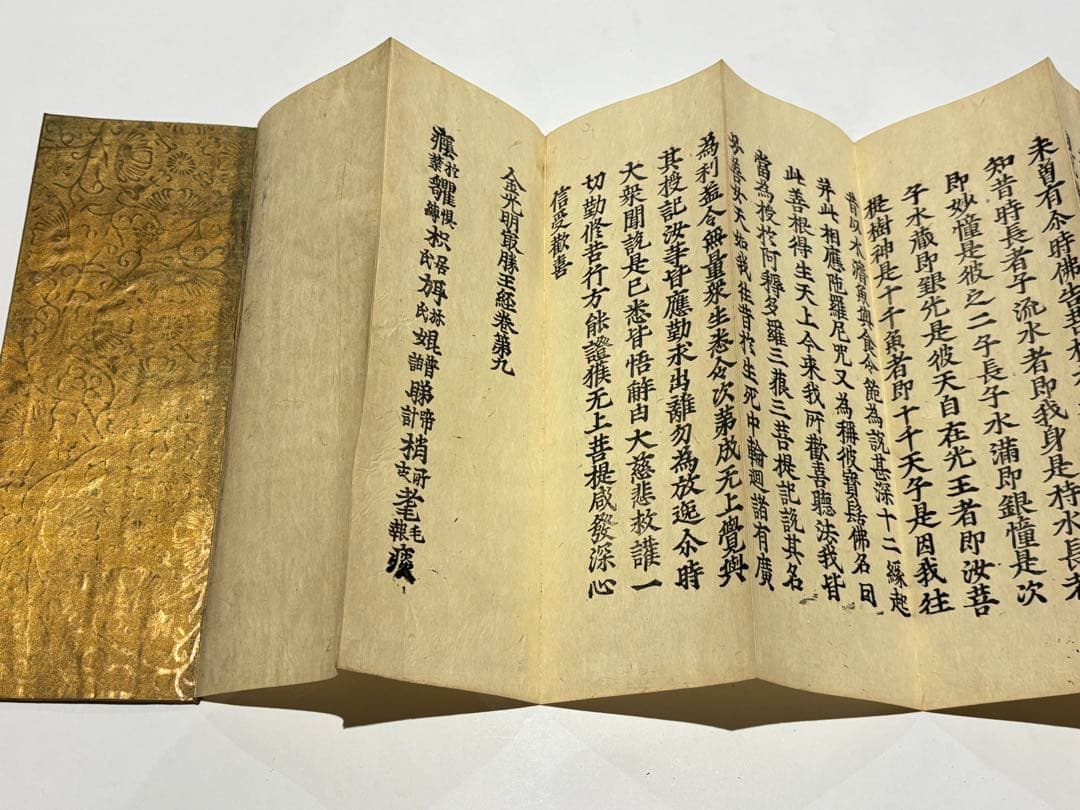 未曾有尒時佛告菩提
知昔時長者子流水者即我身是持水長者
即妙幢是彼之二子長子水滿即銀幢是次
子水藏即銀光是彼天自在光王者即汝菩
提樹神是十千魚者即十千天子是因我往
昔以水濟魚與食令飽為說甚深十二緣起
并此相應陁羅尼呪又為稱彼寶髻佛名因
此善根得生天上今來我所歡喜聽法我皆
當為授於阿耨多羅三藐三菩提記說其名
号善女天如我往昔於生死中輪迴諸有廣
為利益令無量眾生悉令次第成无上覺與
其授記汝等皆應勤求出離勿為放逸尒時
大眾聞說是已悉皆悟解由大慈悲救護一
切勤修苦行方能證獲无上菩提咸發深心
信受歡喜
金光明最勝王經卷第九
於禁 懼縛 枳居氏 弭弥氏 睇啼計 梢所交 耄毛報 痰